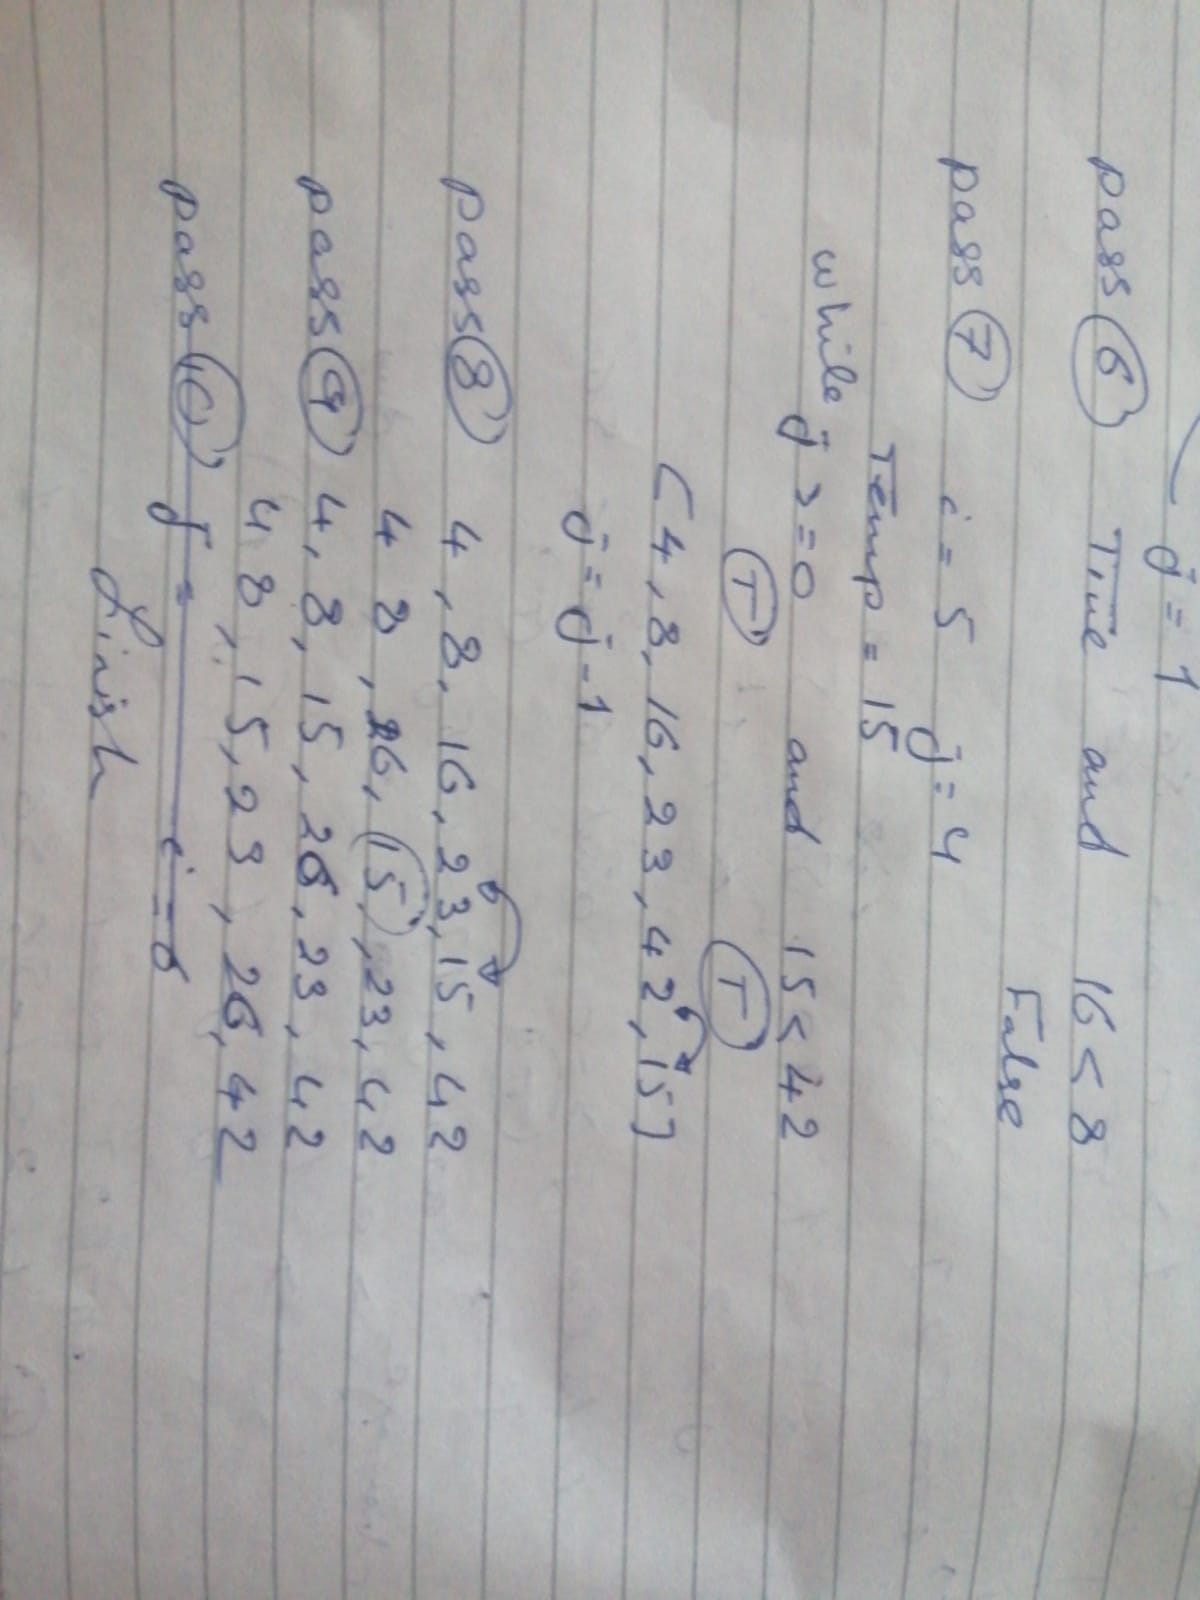 j = 1
pass 6 True and 16 < 8
False
pass 7 i = 5 j = 4
Temp = 15
while j >= 0 and 15 < 42
T T
[4, 8, 16, 23, 42, 15]
j = j - 1
pass 8 4, 8, 16, 23, 15, 42
4 8, 16, 15, 23, 42
pass 9 4, 8, 15, 26, 23, 42
4 8, 15, 23, 26, 42
pass 10 j = i = 6
Finish